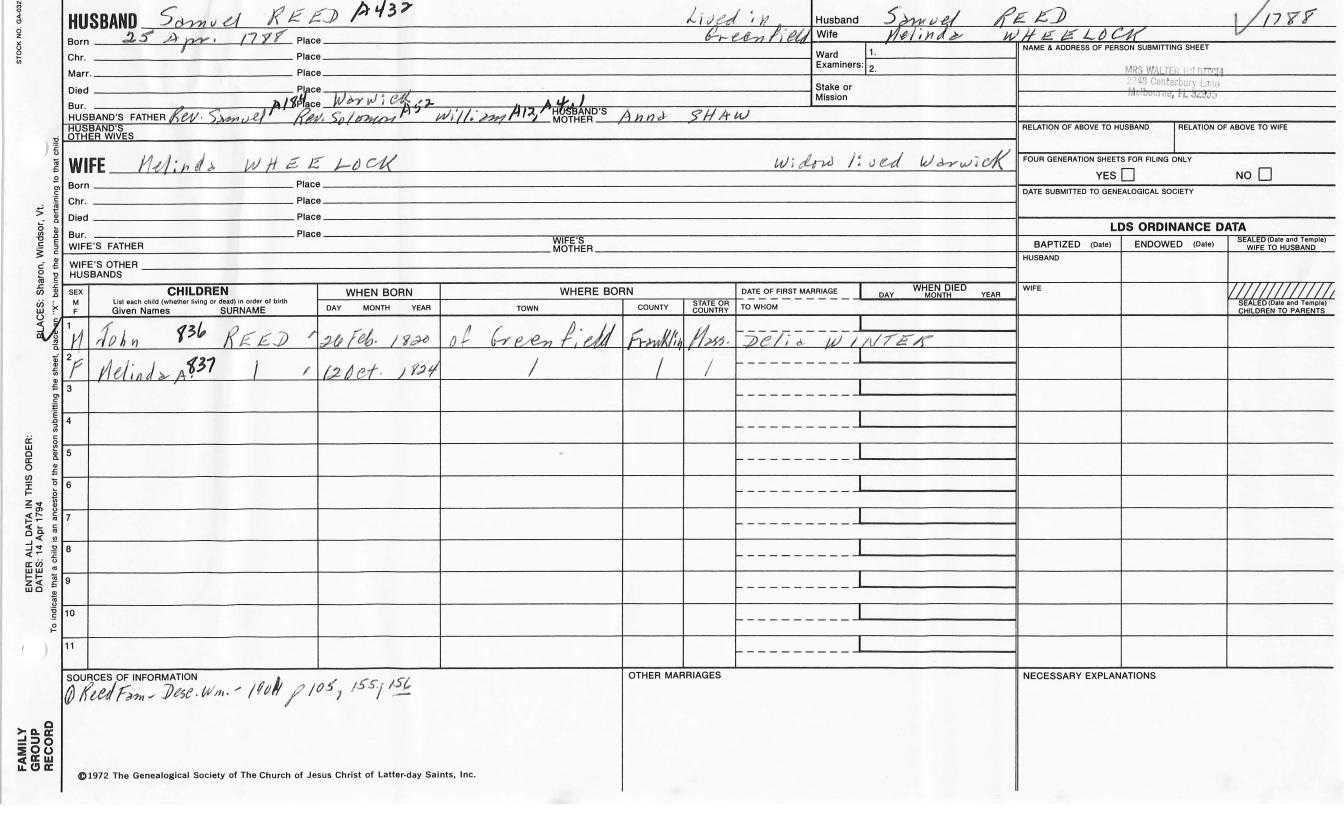 STOCK NO. GA-032
HUSBAND Samuel REED A432 Lived in Greenfield
Born 25 Apr. 1788 Place
Chr. Place
Marr. Place
Died Place
Bur. Place Warwick
HUSBAND'S FATHER Rev. Samuel A184 Rev. Solomon A52 William A12, HUSBAND'S MOTHER Anna SHAW
HUSBAND'S OTHER WIVES
Husband Samuel REED √1788
Wife Melinda WHEELOCK
Ward Examiners: 1.
2.
Stake or Mission
NAME & ADDRESS OF PERSON SUBMITTING SHEET
MRS WALTER
2249 Canterbury Lane
Melbourne, FL
RELATION OF ABOVE TO HUSBAND RELATION OF ABOVE TO WIFE
FOUR GENERATION SHEETS FOR FILING ONLY
YES NO
DATE SUBMITTED TO GENEALOGICAL SOCIETY
WIFE Melinda WHEELOCK Widow lived Warwick
Born Place
Chr. Place
Died Place
Bur. Place
WIFE'S FATHER WIFE'S MOTHER
WIFE'S OTHER HUSBANDS
LDS ORDINANCE DATA
BAPTIZED (Date) ENDOWED (Date) SEALED (Date and Temple) WIFE TO HUSBAND
HUSBAND
WIFE
SEALED (Date and Temple) CHILDREN TO PARENTS
SEX M F CHILDREN List each child (whether living or dead) in order of birth Given Names SURNAME WHEN BORN DAY MONTH YEAR WHERE BORN TOWN COUNTY STATE OR COUNTRY DATE OF FIRST MARRIAGE TO WHOM WHEN DIED DAY MONTH YEAR
1 M John 836 REED " 26 Feb. 1820 of Greenfield Franklin Mass. Delia WINTER
2 F Melinda A. 837 | " 12 Oct. 1824 | | |
3
4
5
6
7
8
9
10
11
SOURCES OF INFORMATION
① Reed Fam - Desc. Wm. - 1901 p 105, 155, 156
OTHER MARRIAGES
NECESSARY EXPLANATIONS
©1972 The Genealogical Society of The Church of Jesus Christ of Latter-day Saints, Inc.
FAMILY GROUP RECORD
ENTER ALL DATA IN THIS ORDER:
DATES: 14 Apr 1794 PLACES: Sharon, Windsor, Vt.
To indicate that a child is an ancestor of the person submitting the sheet, place an "X" behind the number pertaining to that child.